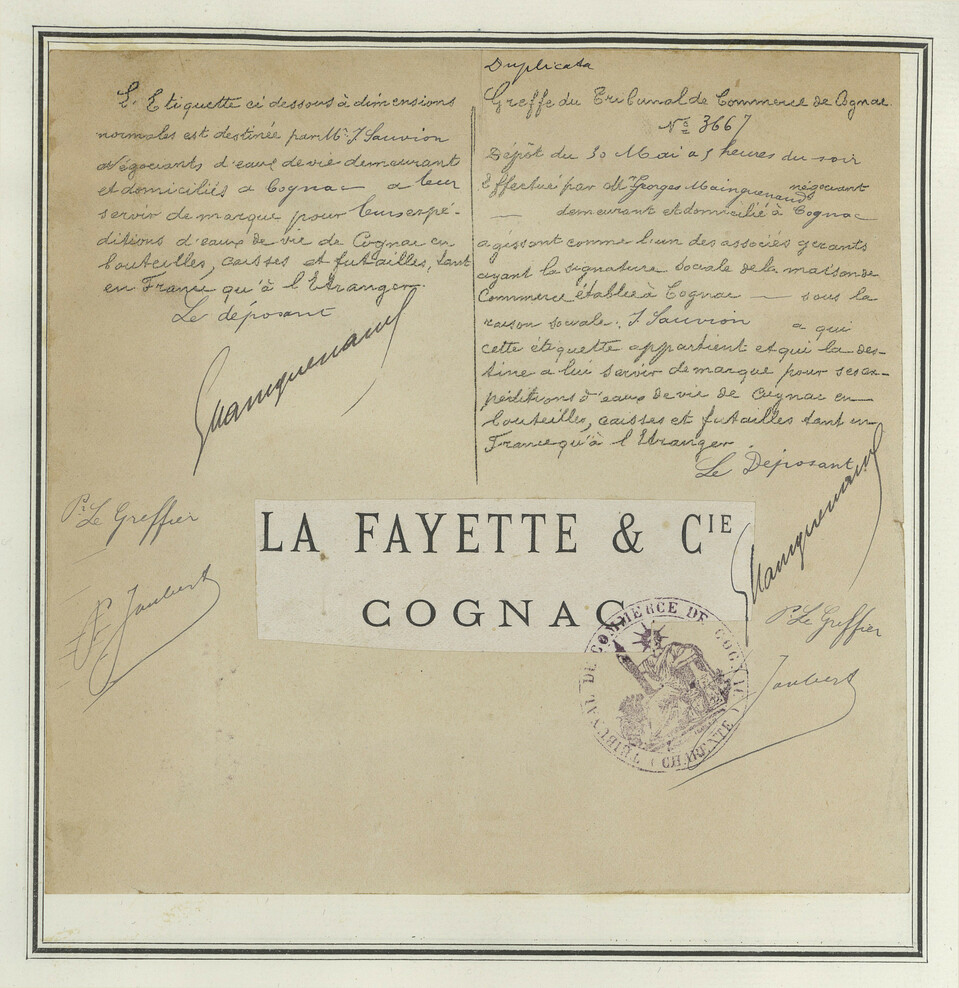 L'Etiquette ci dessous à dimensions
normales est destinée par Mr. J. Sauvion
Négociants d'eaux de vie demeurant
et domiciliés a Cognac a leur
servir de marque pour leurs expé-
ditions d'eaux de vie de Cognac en
bouteilles, caisses et futailles, tant
en France qu'à l'Etranger.
Le déposant
Mainguenaud
Pr. Le Greffier
Joubert
Duplicata
Greffe du Tribunal de Commerce de Cognac.
No 3667
Dépôt du 30 Mai a 5 heures du soir
Effectué par Mr Georges Mainguenaud négociant
— demeurant et domicilié à Cognac
agissant comme l'un des associés gérants
ayant la signature sociale de la maison de
Commerce établie à Cognac — sous la
raison sociale: J. Sauvion a qui
cette étiquette appartient et qui la des-
tine a lui servir de marque pour ses ex-
péditions d'eaux de vie de Cognac en
bouteilles, caisses et futailles tant en
France qu'à l'Etranger.
Le Déposant
Mainguenaud
Pr Le Greffier
Joubert
LA FAYETTE & CIE
COGNAC
TRIBUNAL DE COMMERCE DE COGNAC
(CHARENTE)